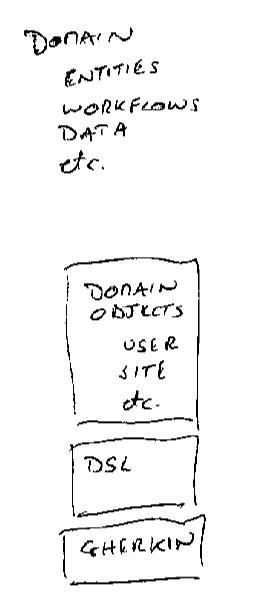 DOMAIN
ENTITIES
WORKFLOWS
DATA
etc.
DOMAIN
OBJECTS
USER
SITE
etc.
DSL
GHERKIN